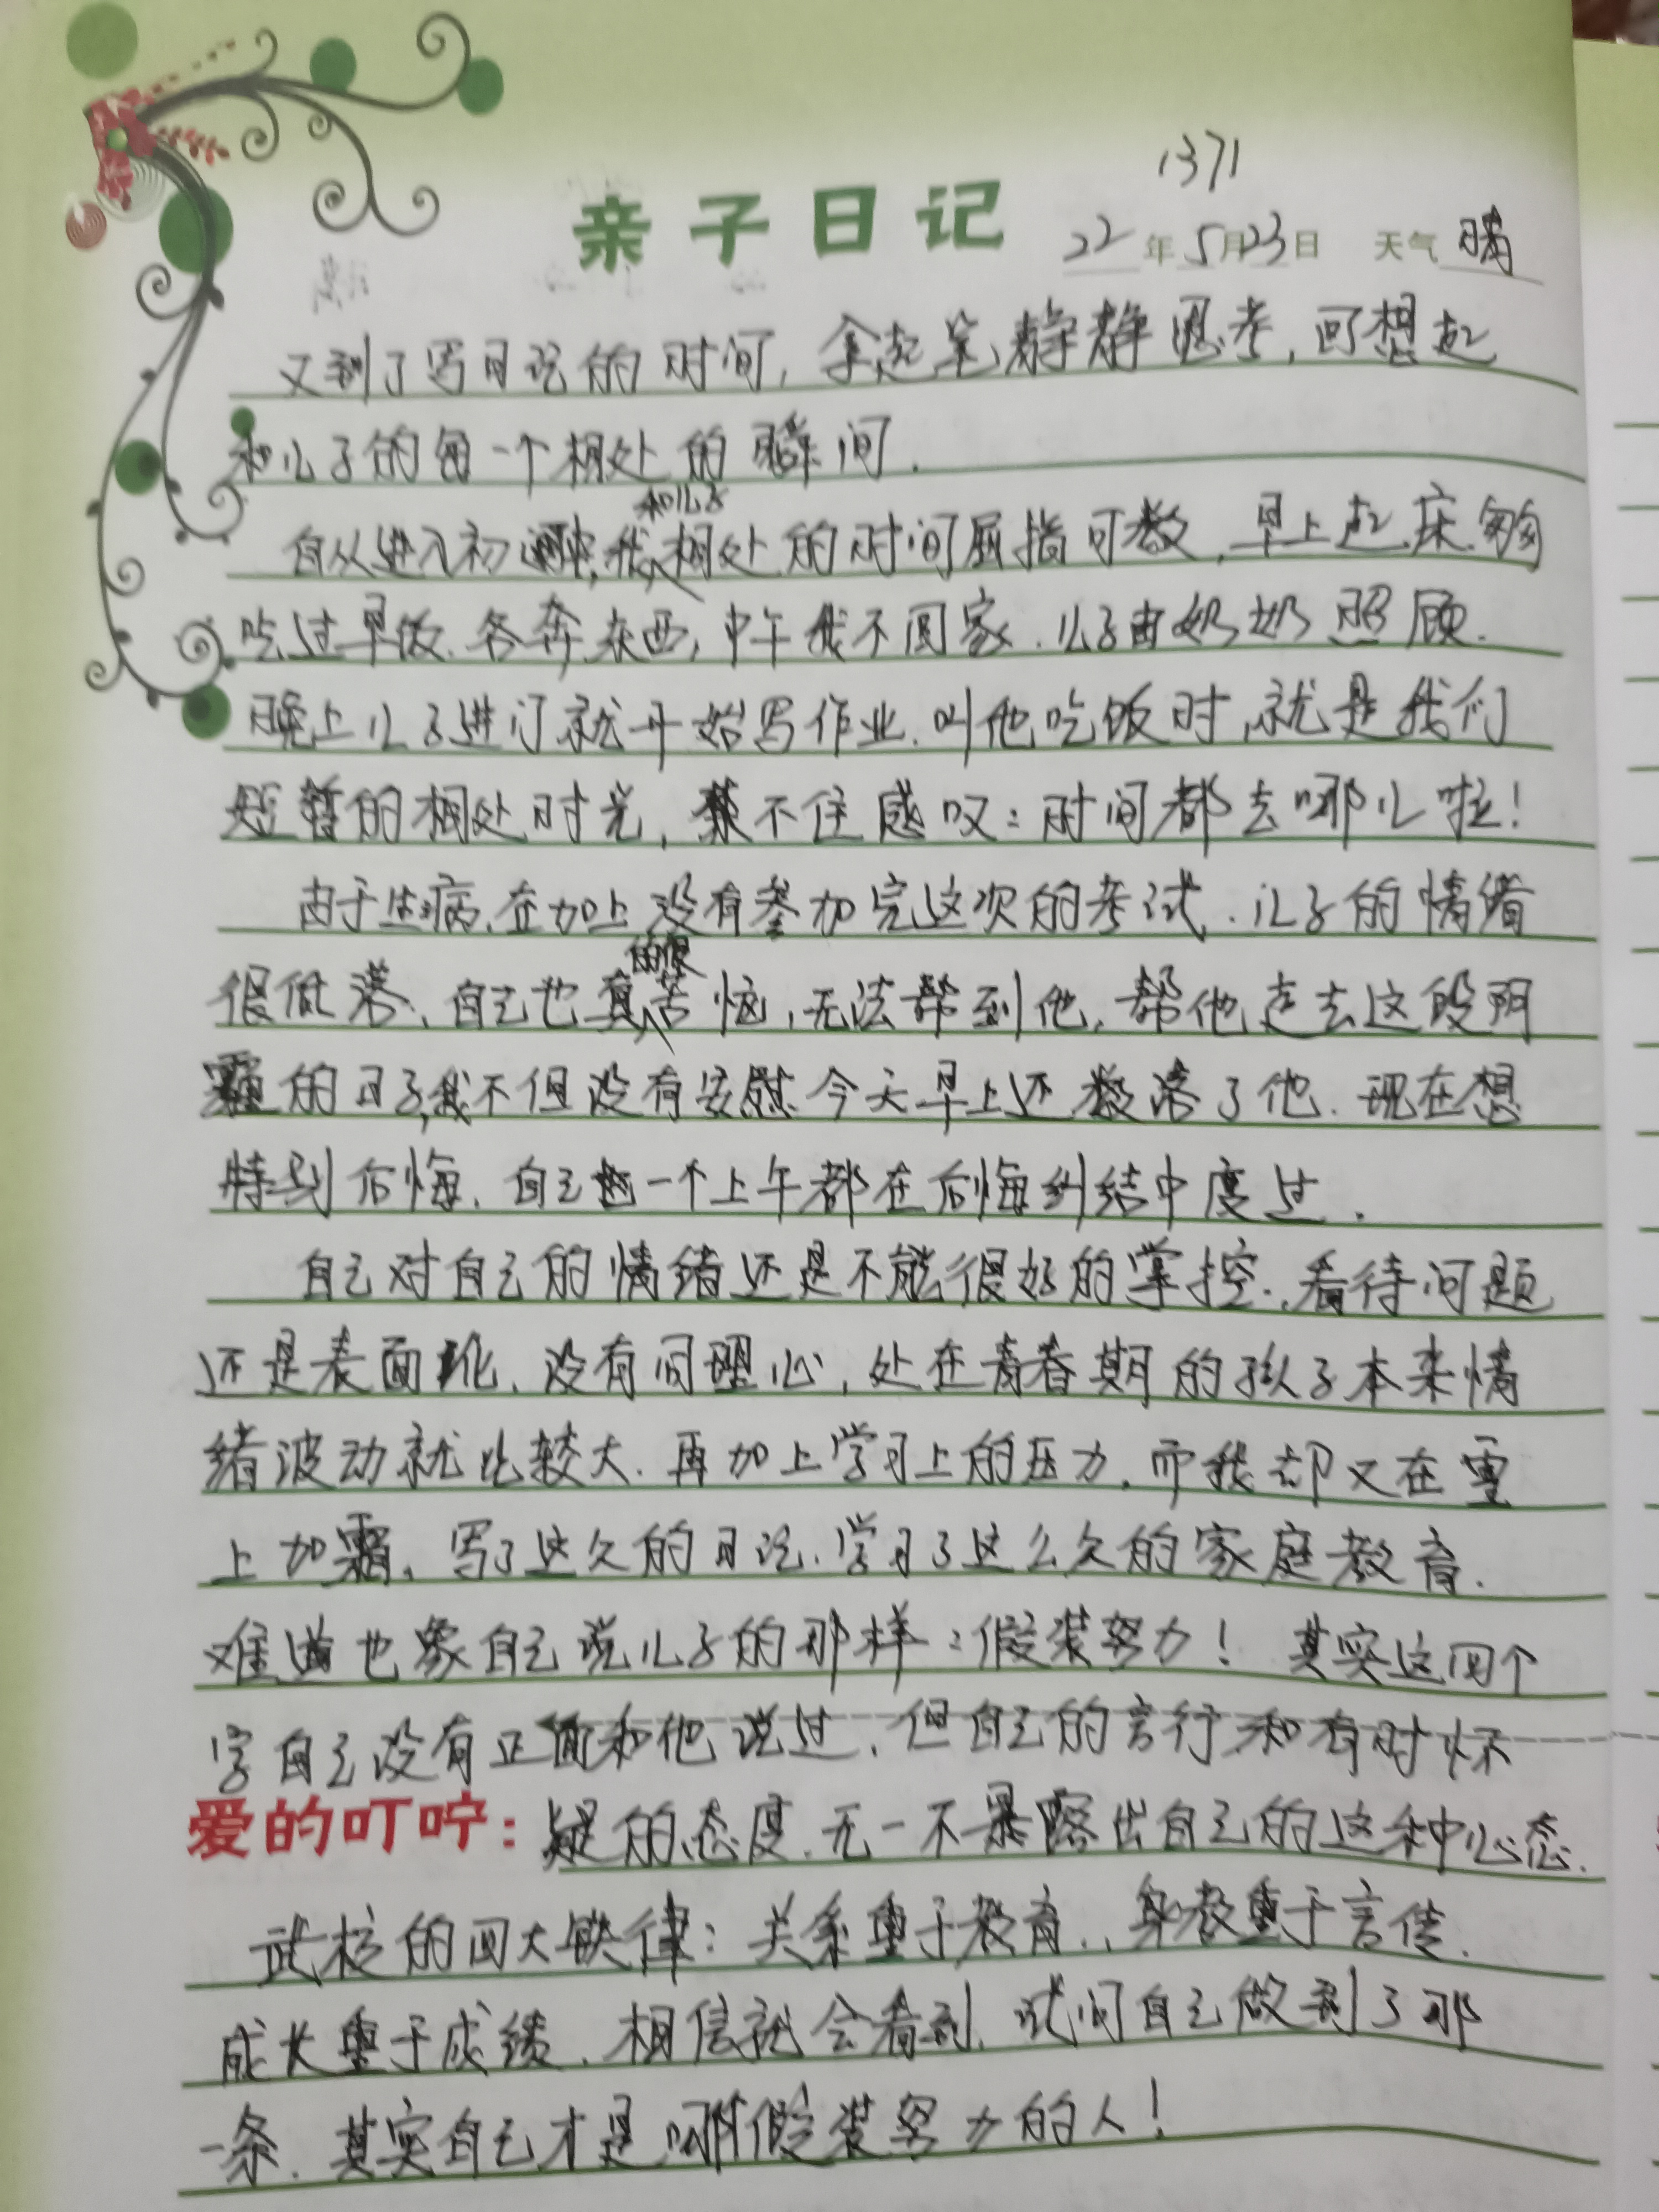 1371
亲子日记 22年5月23日 天气 晴
又到了写日记的时间，拿起笔，静静思考，回想起
和儿子的每一个相处的瞬间.
自从进入初中，我和儿子相处的时间屈指可数，早上起床匆匆
吃过早饭.各奔东西，中午我不回家.儿子由奶奶照顾.
晚上儿子进门就开始写作业.叫他吃饭时，就是我们
短暂的相处时光，禁不住感叹：时间都去哪儿啦！
由于生病.在加上没有参加完这次的考试.儿子的情绪
很低落、自己也真的很苦恼，无法帮到他，帮他走去这段阴
霾的日子，我不但没有安慰今天早上还数落了他.现在想
特别后悔.自己一个上午都在后悔纠结中度过.
自己对自己的情绪还是不能很好的掌控.看待问题
还是表面化、没有同理心，处在青春期的孩子本来情
绪波动就比较大.再加上学习上的压力.而我却又在雪
上加霜，写了这久的日记.学习了这么久的家庭教育.
难道也象自己说儿子的那样：假装努力！其实这四个
字自己没有正面和他说过，但自己的言行和有时怀
爱的叮咛：疑的态度.无一不暴露出自己的这种心态.
武校的四大铁律：关系重于教育，身教重于言传.
成长重于成绩.相信就会看到.试问自己做到了那
一条.其实自己才是哪假装努力的人！